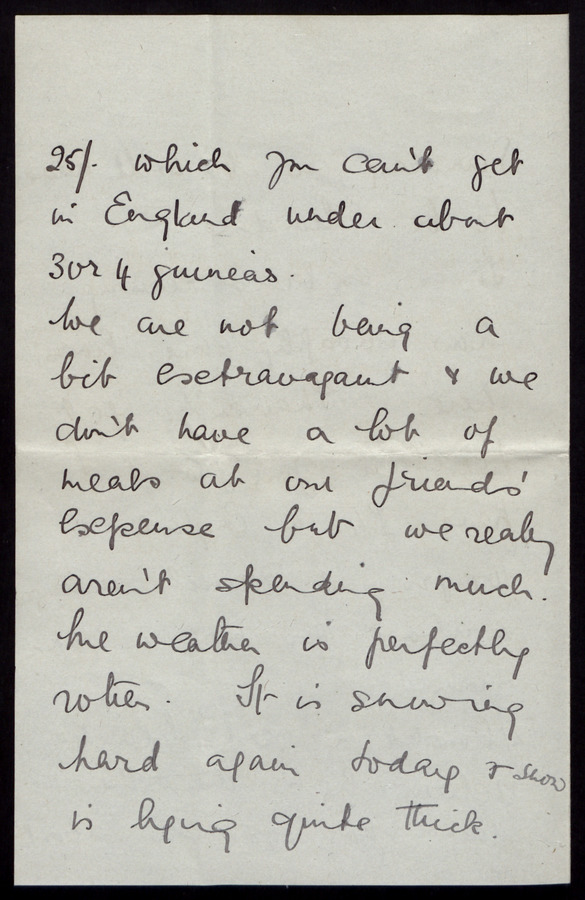 25/- which you can't get
in England under about
3 or 4 guineas.
We are not being a
bit extravagant & we
don't have a lot of
meals at our friends'
expense but we really
aren't spending much.
The weather is perfectly
rotten. It is snowing
hard again today & snow
is lying quite thick.